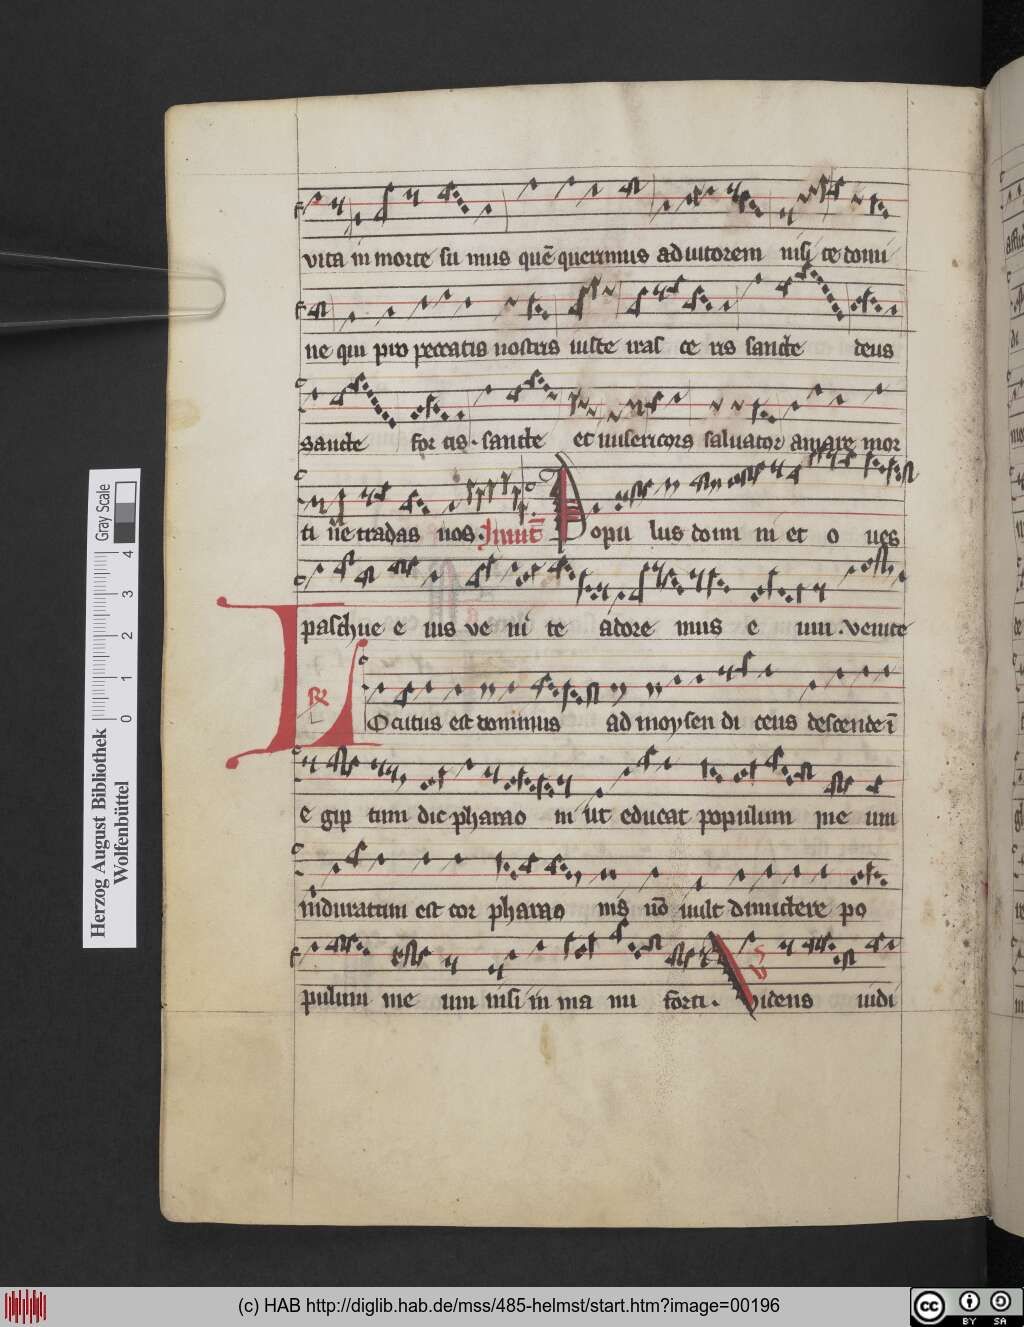 vita in morte su mus quē querimus adiutorem nisi te domi
ne qui pro peccatis nostris iuste irasce ris sancte deus
sancte for tis. sancte et misericors saluator amare mor
ti ne tradas nos. Inuit̄ Popu lus domi ni et o ues
paschue e ius ve ni te adore mus e um. venite
R LOcutus est dominus ad moysen di cens descende ī
e gip tum dic pharao ni ut educat populum me um
induratum est cor pharao nis nō uult dimittere po
pulum me um nisi in ma nu forti. V Videns uidi
Herzog August Bibliothek
Wolfenbüttel
Gray Scale
0 1 2 3 4
(c) HAB http://diglib.hab.de/mss/485-helmst/start.htm?image=00196
cc BY SA